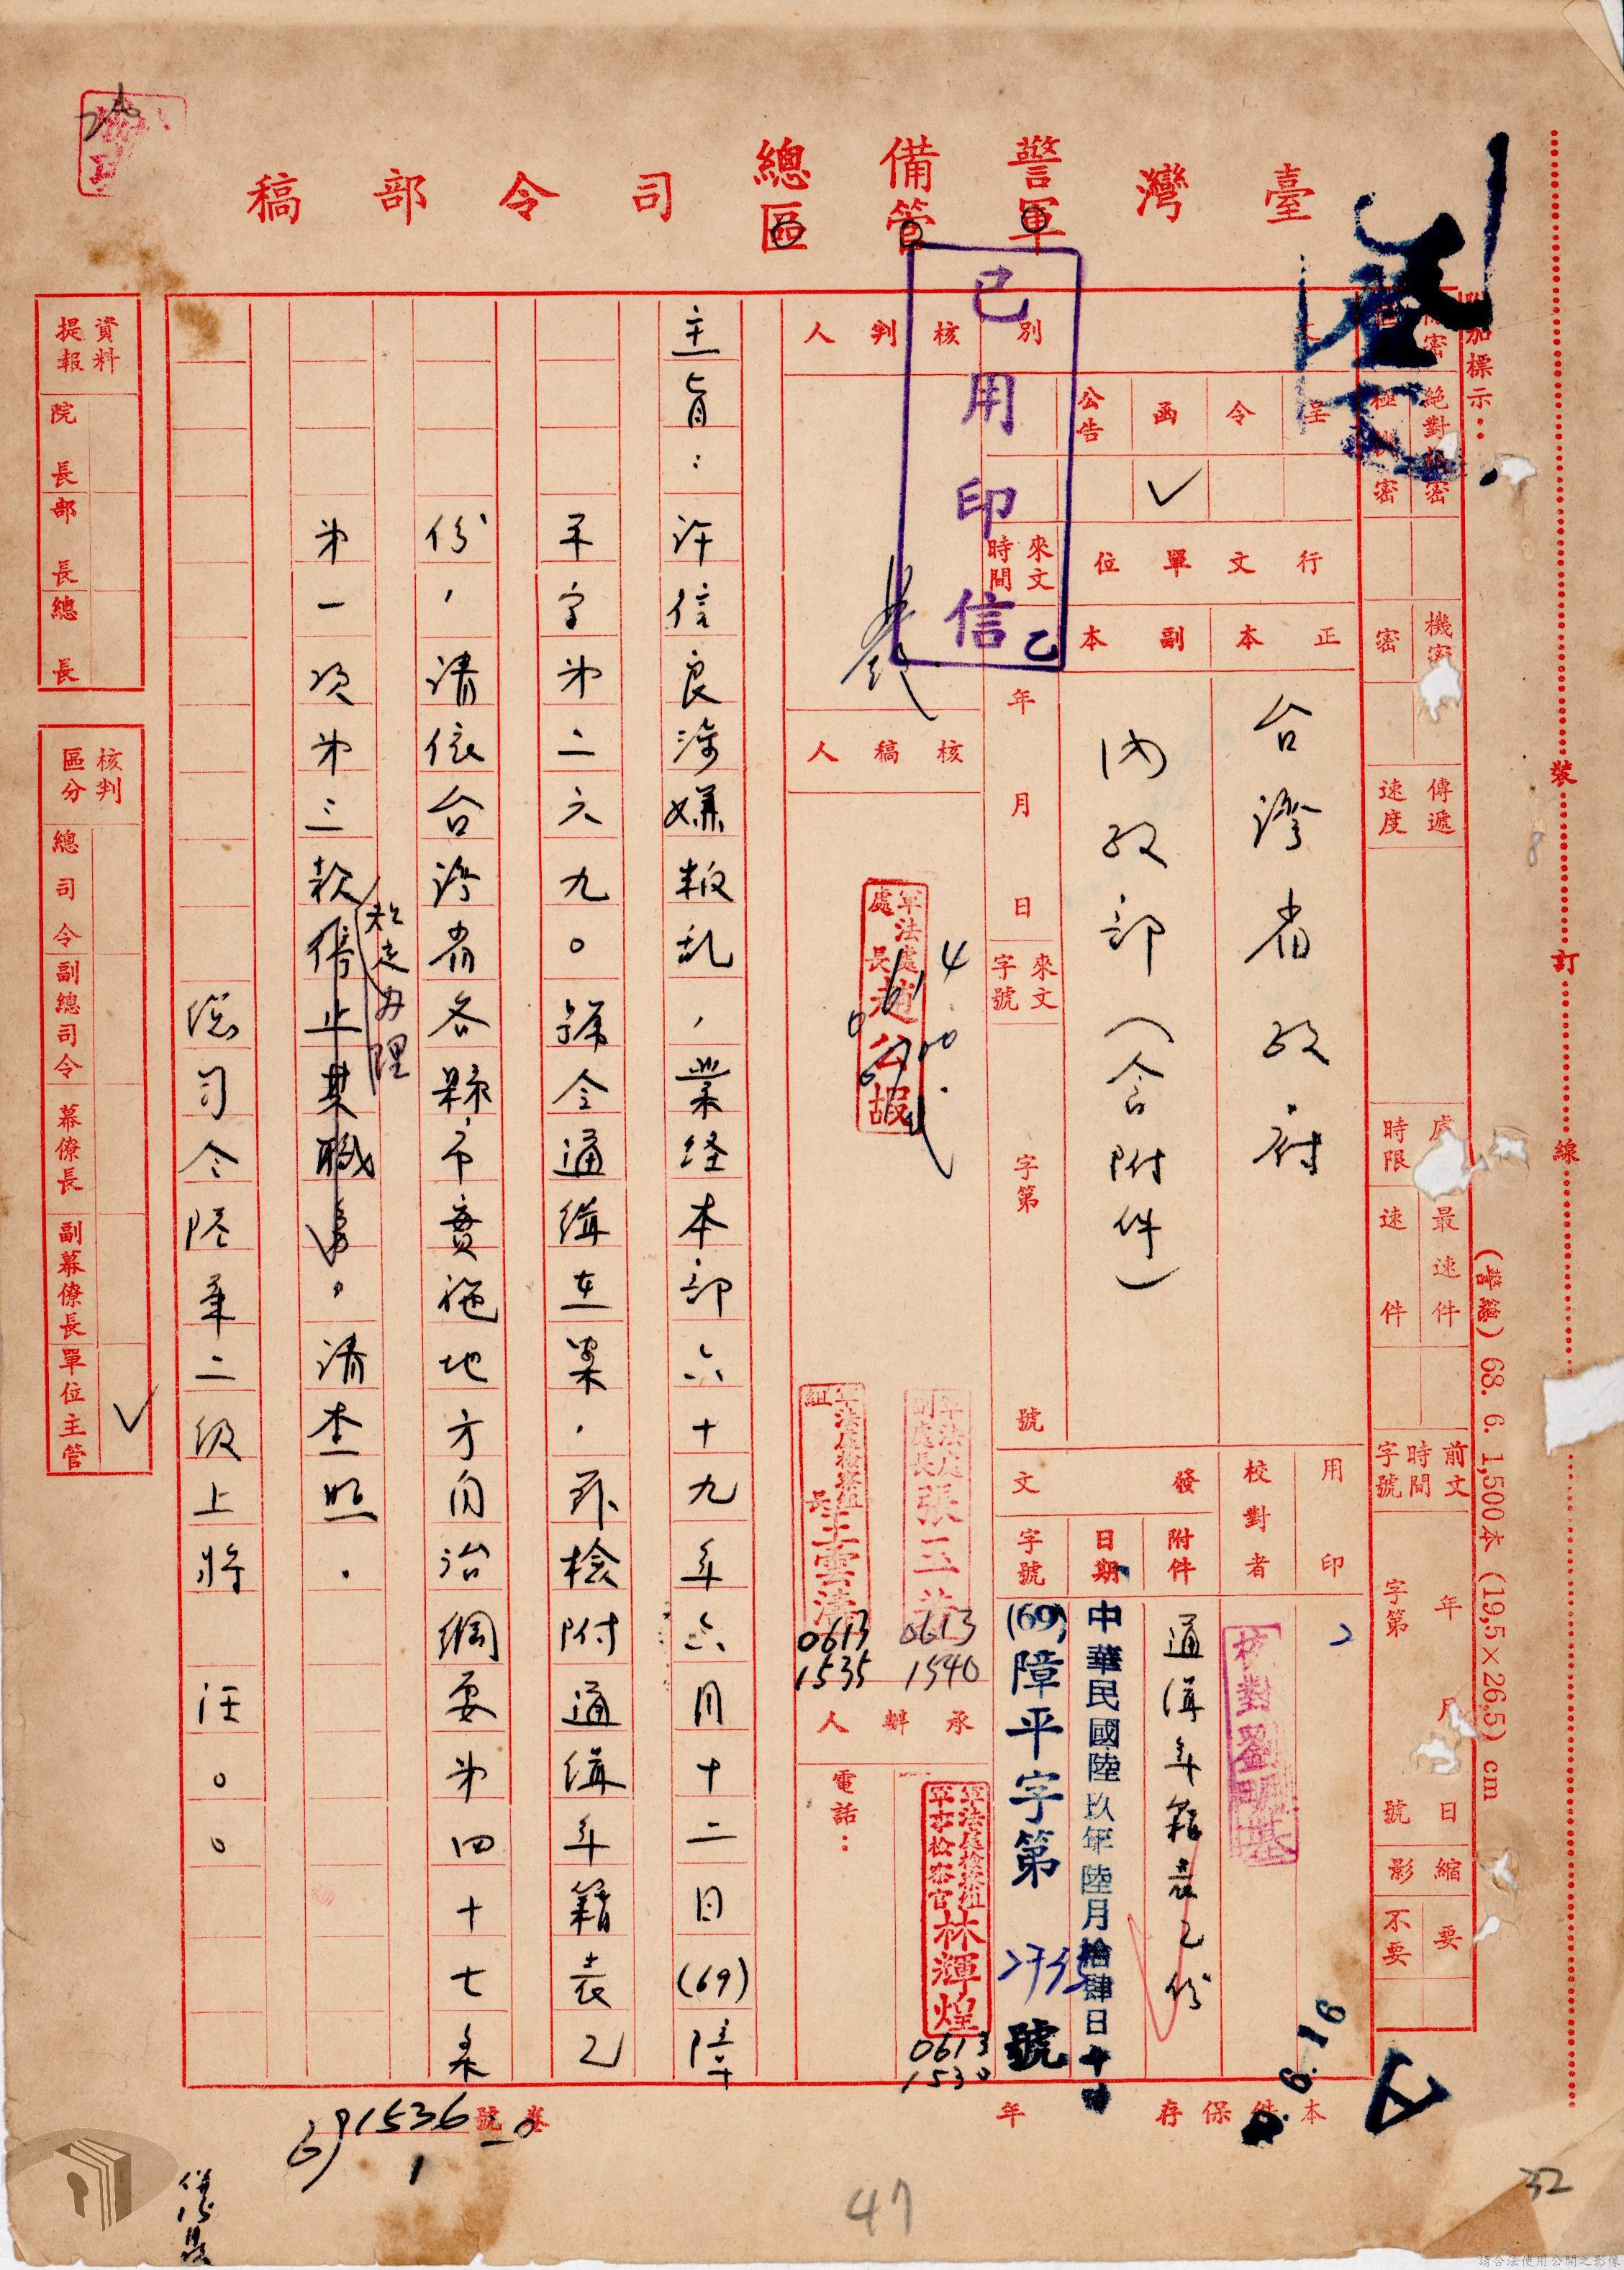 臺灣警備總司令部稿
軍管區
附加標示：
裝訂線
(警總) 68. 6. 1,500本 (19,5×26,5) cm
絕對機密
極機密
機密
密
傳遞速度
處理時限
最速件
速件
前文時間字號
年月日
字第號
縮影
要
不要
已用印信
乙
別
呈
令
函
公告
✓
行文單位
正本
副本
台灣省政府
內政部（含附件）
來文時間
年月日
來文字號
字第號
用印
校對者
校對劉明基
發文
附件
通緝年籍表乙份
日期
中華民國陸玖年陸月拾肆日
字號
(69)障平字第2735號
核判人
核稿人
軍法處處長趙公嘏
軍法處副處長張
0613
1540
軍法處檢察組組長王雲濤
0613
1535
承辦人
電話：
軍法處檢察組軍事檢察官林輝煌
0613
1530
主旨：許信良涉嫌叛乱，業経本部六十九年六月十二日(69)障
平字第二六九〇號令通緝在案，茲檢附通緝年籍表乙
份，請依台灣省各縣市實施地方自治綱要第四十七条
第一項第三款停止其職務，請查照。
規定辦理
總司令陸軍二級上將 汪〇〇
資料提報
院長
部長
總長
核判區分
總司令
副總司令
幕僚長
副幕僚長
單位主管
✓
本件保存年
卷號
691536
1
6.16
47
32
請合法使用公開之影像